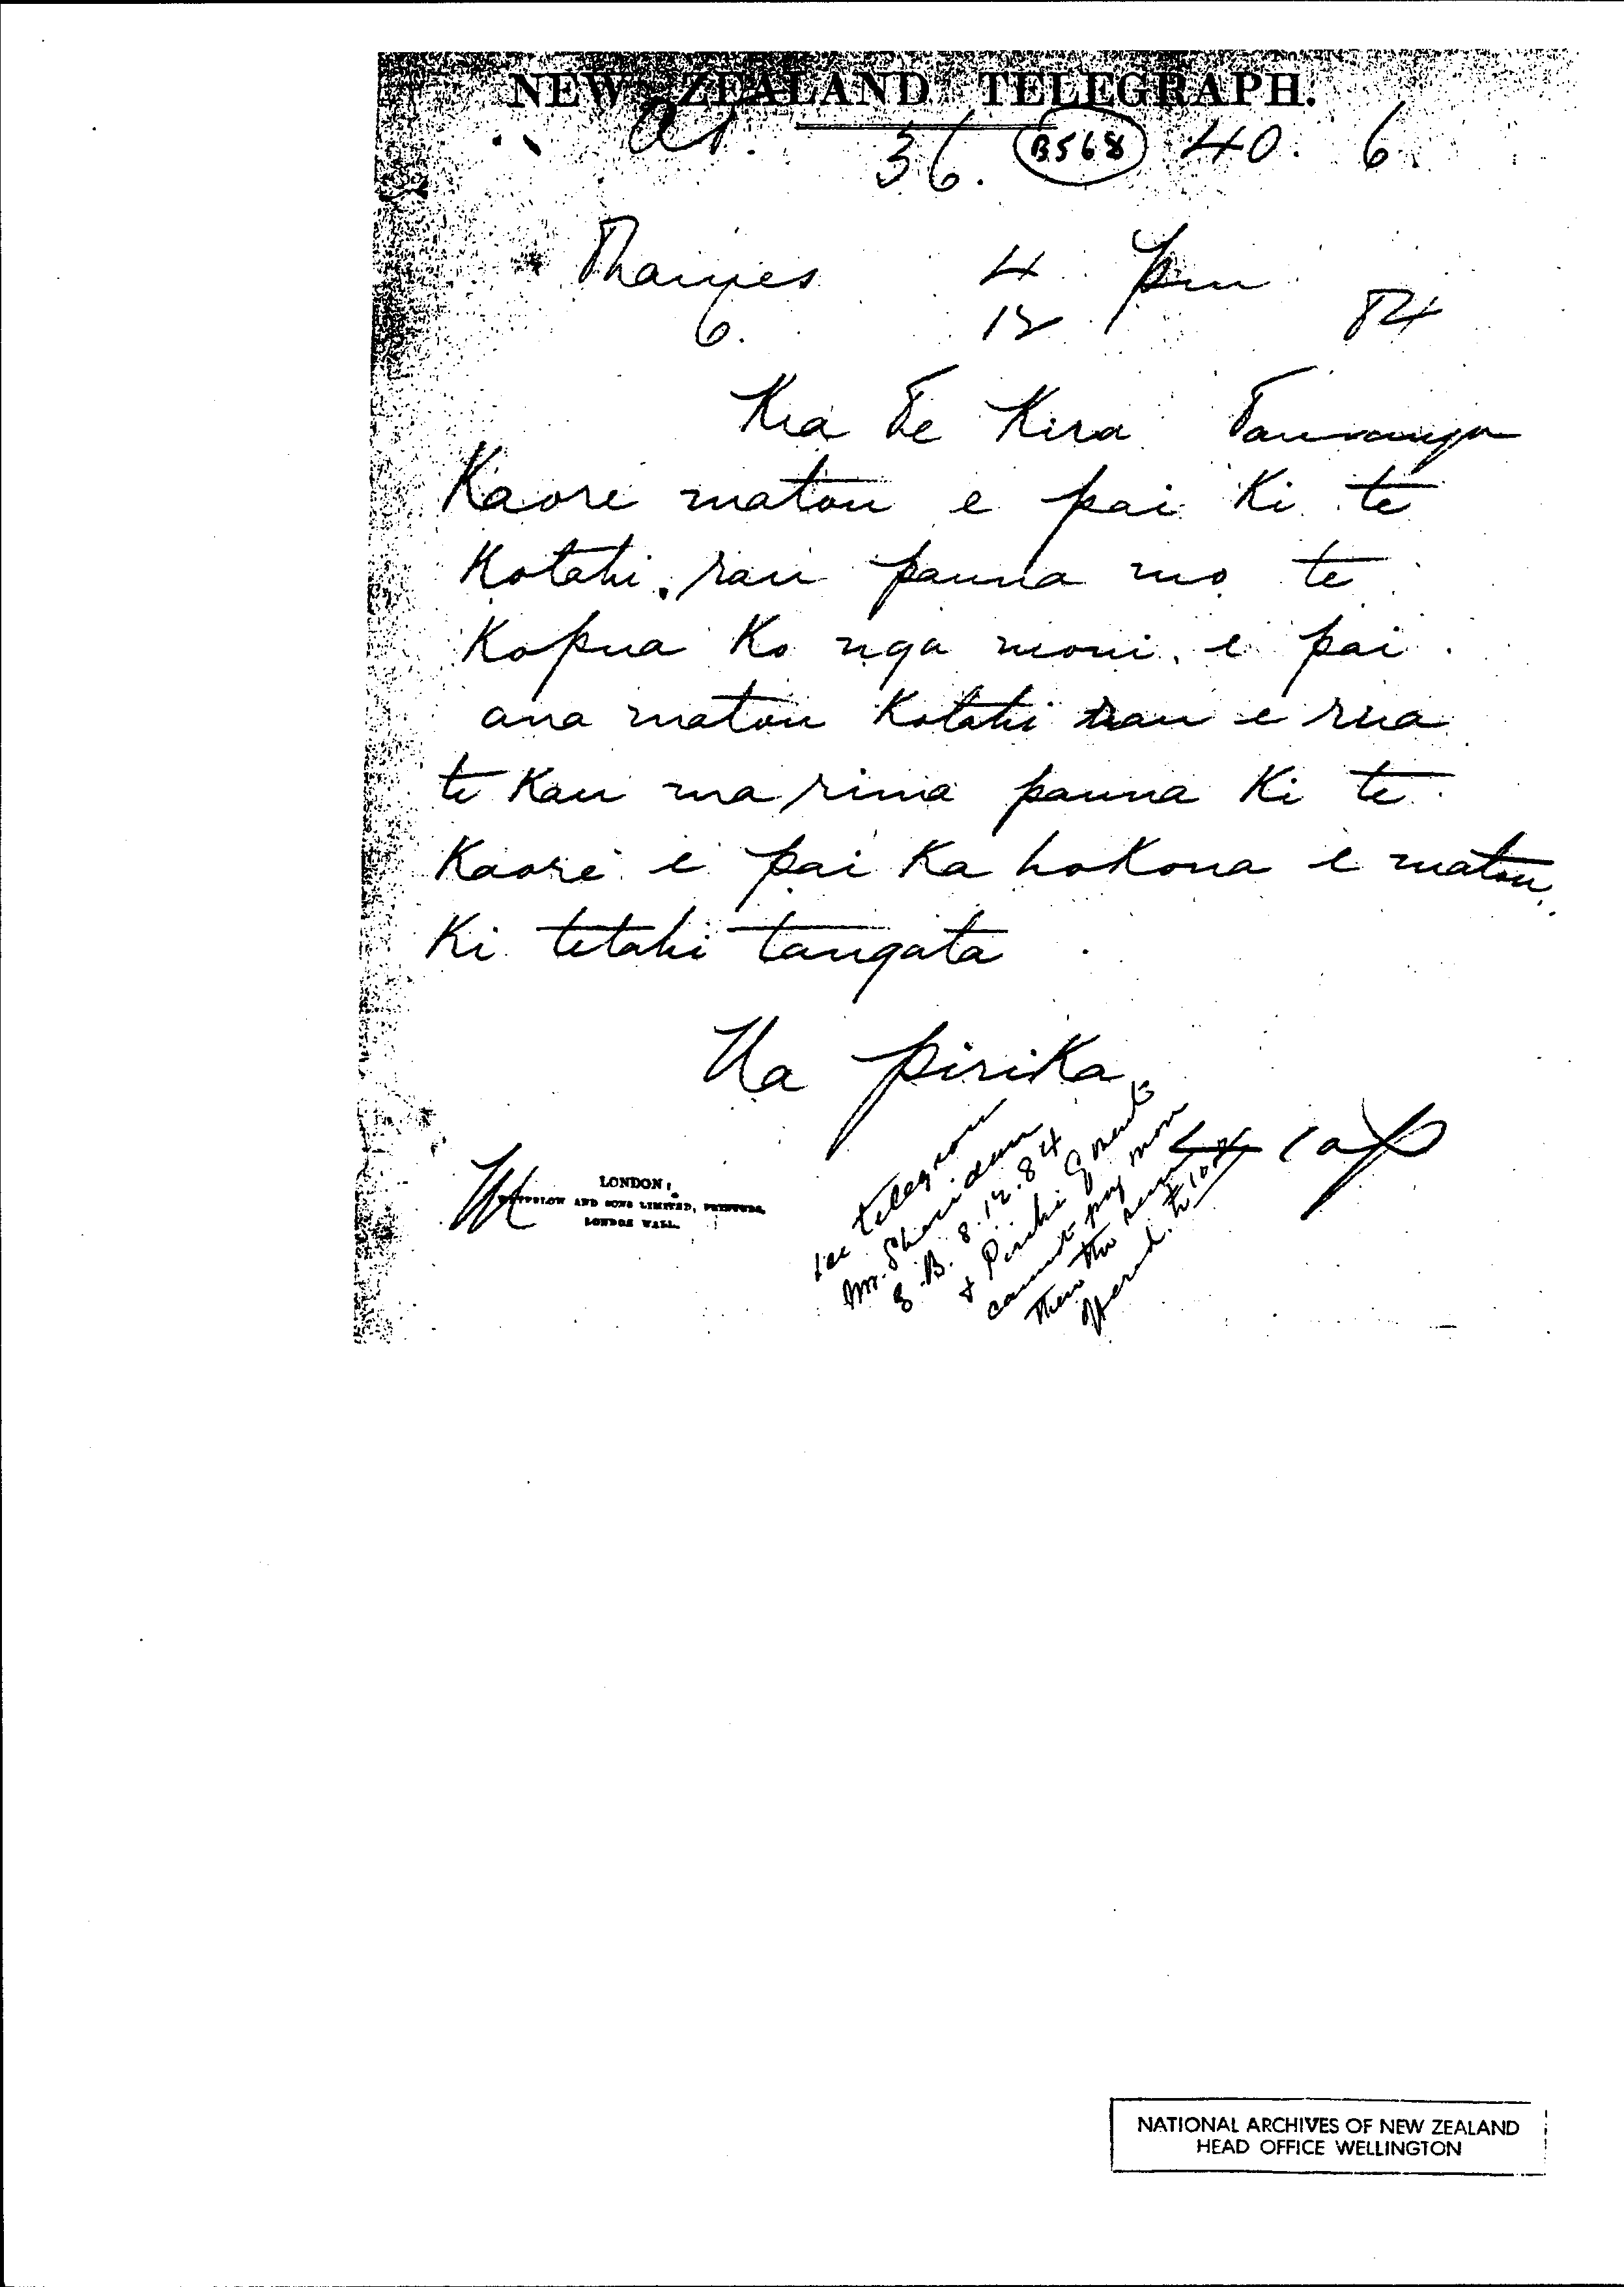 NEW ZEALAND TELEGRAPH.
36. B568 40. 6.
Thames 4 pm
6. 12 84
Kia Te Kira Tauranga
Kaore matou e pai ki te
Kotahi rau pauna mo te
Kopua Ko nga moni e pai
ana matou Kotahi rau e rua
te Kau ma rima pauna Ki te
Kaore e pai Ka hokona e matou
Ki tetahi tangata
Na pirika
LONDON:
WATERLOW AND SONS LIMITED, PRINTERS,
LONDON WALL.
see telegram
Mr. Sheridan
8.12.84
cannot pay more
than the
offered.
NATIONAL ARCHIVES OF NEW ZEALAND
HEAD OFFICE WELLINGTON